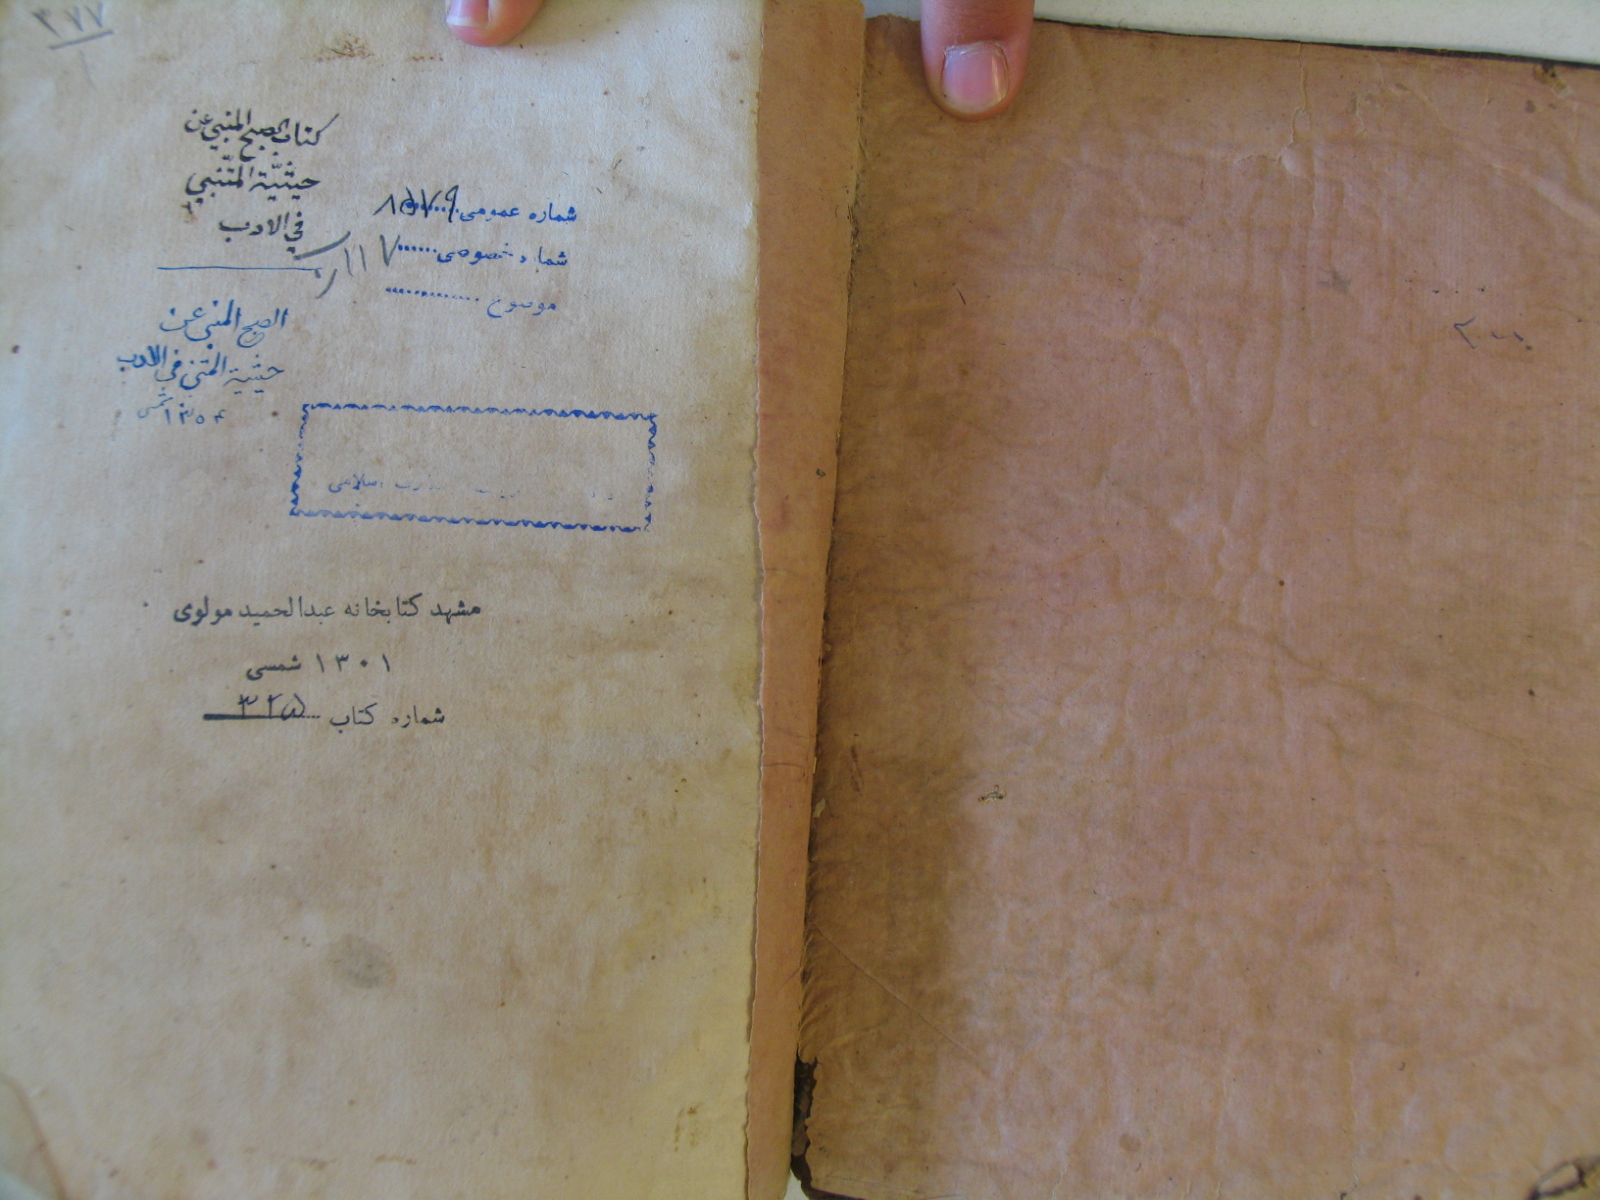 ٣٧٧
١
كتاب الصبح المنبي عن
حيثيّة المتنبي
في الادب
شماره عمومی ٨٥٧٩
شماره خصوصی ١١٧
موضوع
الصبح المنبي عن
حيثية المتنبي في الادب
١٣٥۴ شمسی
اسلامی
مشهد کتابخانه عبدالحمید مولوی
١٣٠١ شمسی
شماره کتاب ٣٢۵